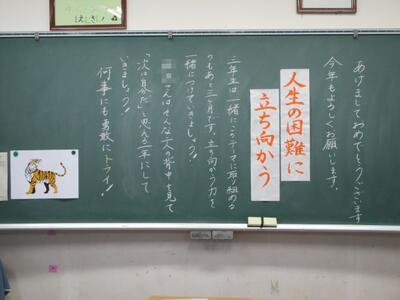 あけましておめでとうございます
今年もよろしくお願いします。
人生の困難に
立ち向かう
三年生は一緒にこのテーマに取り組める
のもあと三ヶ月です。立ち向かう力を
一緒につけていきましょう！
二人はそんな三人の背中を見て
「次は自分だ」と思える一年にして
いきましょう！
何事にも勇敢にトライ！